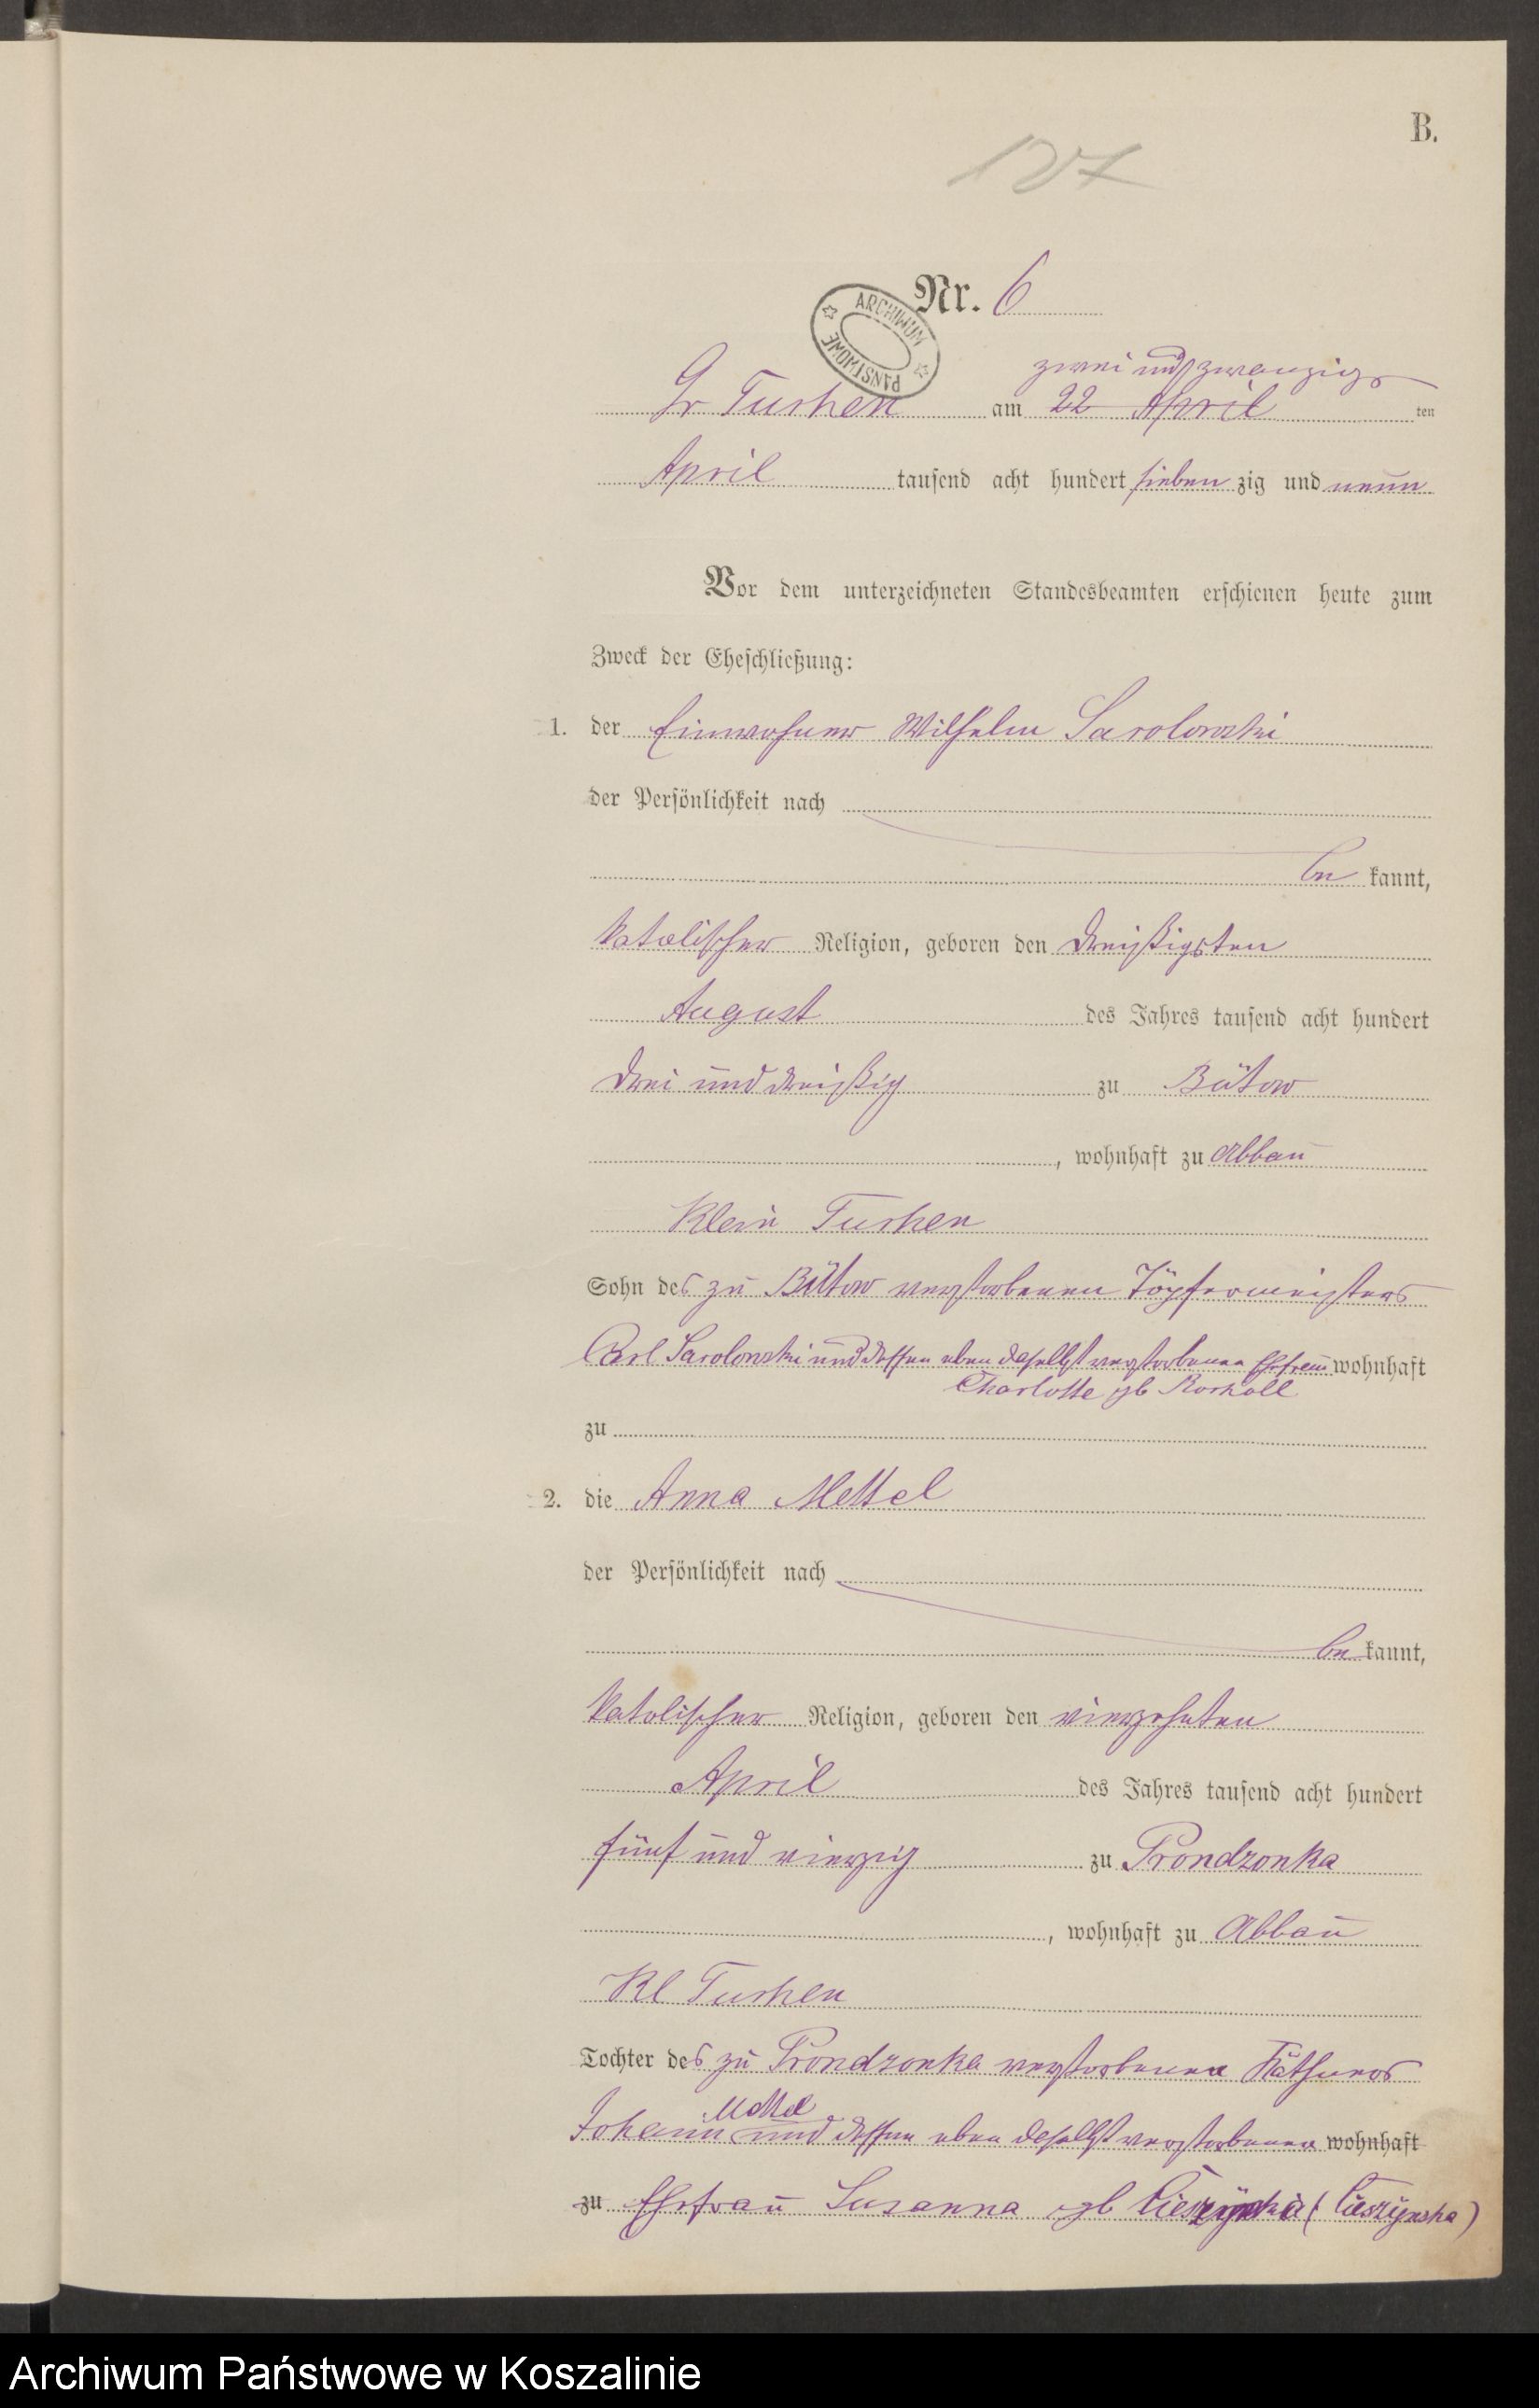 B.
127
Nr. 6
ARCHIWUM PAŃSTWOWE
zwei und zwanzigs
Gr Tuchen am 22 April ten
April tausend acht hundert sieben zig und neun
Vor dem unterzeichneten Standesbeamten erschienen heute zum
Zweck der Eheschließung:
1. der Einwohner Wilhelm Sarolowski
der Persönlichkeit nach
be kannt,
katolischer Religion, geboren den dreißigsten
August des Jahres tausend acht hundert
drei und dreißig zu Bütow
, wohnhaft zu Abbau
Klein Tuchen
Sohn des zu Bütow verstorbenen Töpfermeisters
Carl Sarolowski und dessen eben daselbst verstorbenen Ehefrau wohnhaft
Charlotte gb
zu
2. die Anna Mettel
der Persönlichkeit nach
be kannt,
katolischer Religion, geboren den vierzehnten
April des Jahres tausend acht hundert
fünf und vierzig zu Prondzonka
, wohnhaft zu Abbau
Kl Tuchen
Tochter des zu Prondzonka verstorbenen Käthners
Mettel
Johann und dessen eben daselbst verstorbenen wohnhaft
zu Ehefrau Susanna gb (Cieszynska)
Archiwum Państwowe w Koszalinie